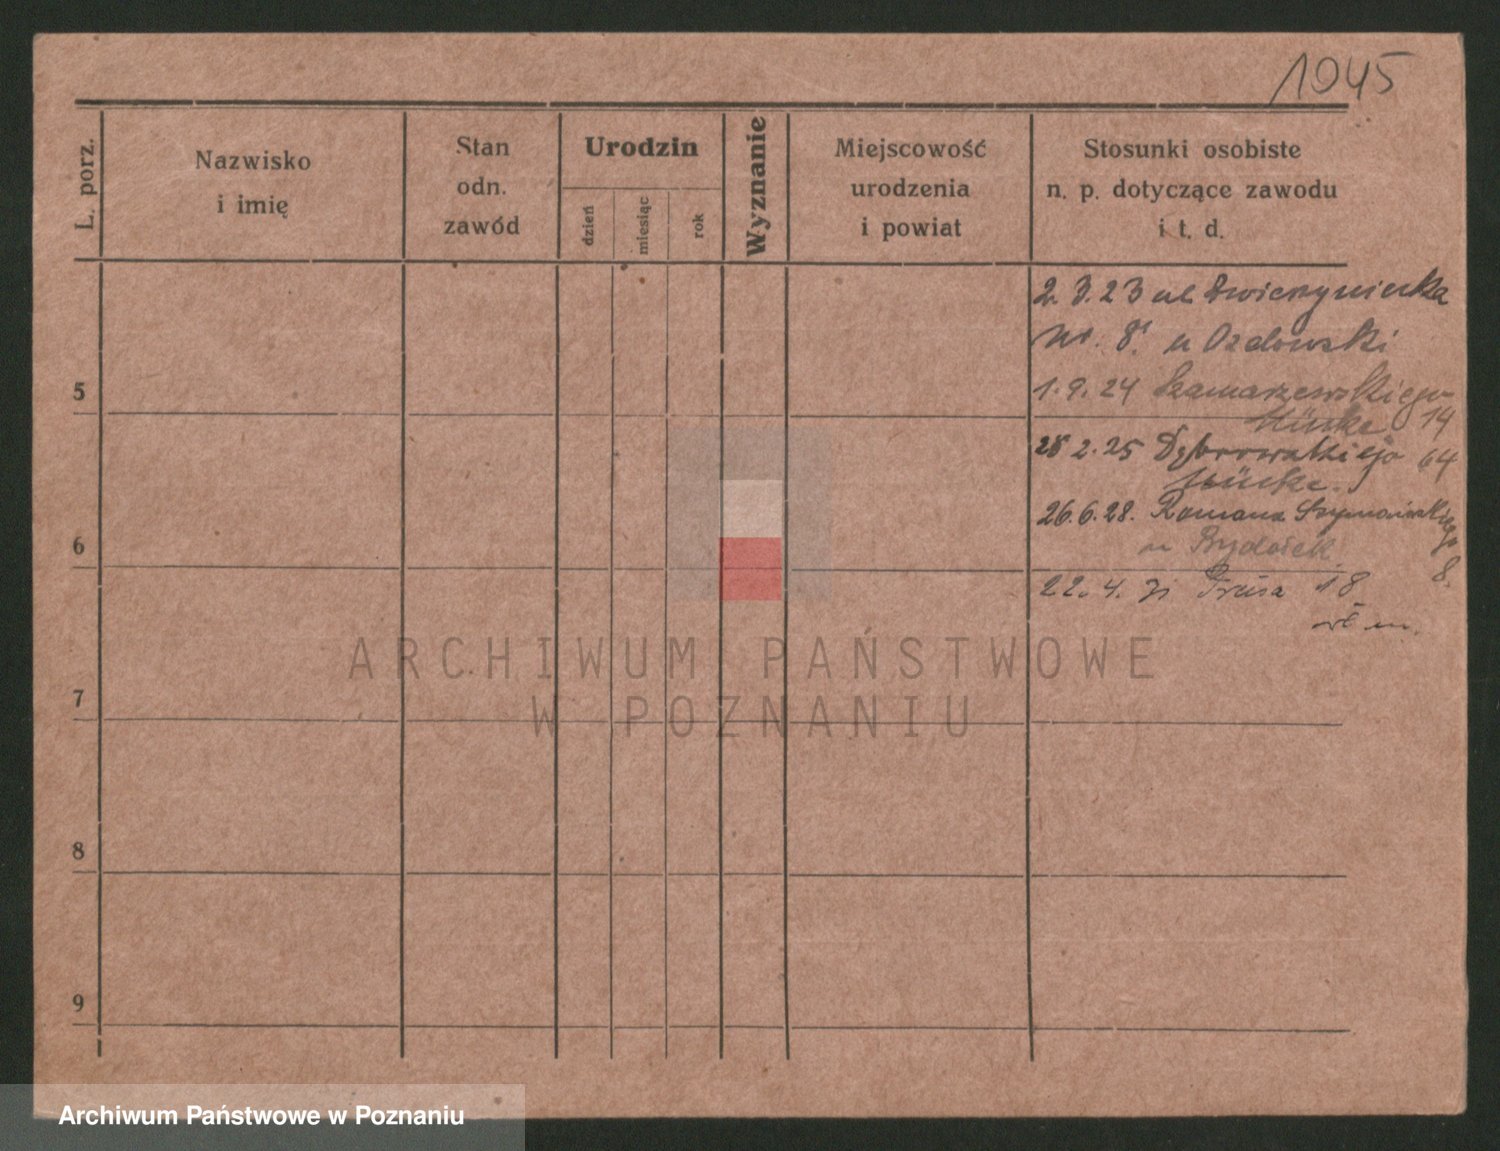 1045
L. porz.
Nazwisko
i imię
Stan
odn.
zawód
Urodzin
dzień
miesiąc
rok
Wyznanie
Miejscowość
urodzenia
i powiat
Stosunki osobiste
n. p. dotyczące zawodu
i t. d.
2. 3. 23 ul
Nr. 8. u Ozdowski
5
1. 9. 24 Szamarzewskiego
14
28 2. 25 Dąbrowskiego 64
26. 6. 28. Romana Szymańskiego
8.
6
22. 4. 31 Prusa 18
7
8
9
ARCHIWUM PAŃSTWOWE
W POZNANIU
Archiwum Państwowe w Poznaniu